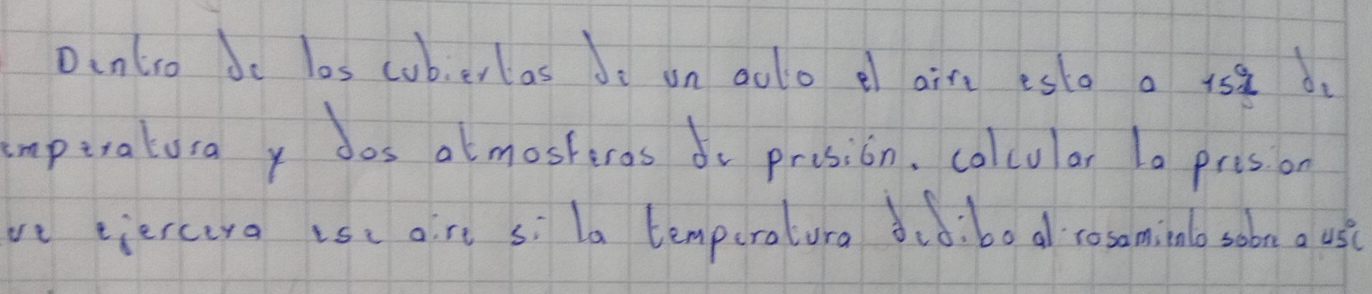 Dentro de los cubiertas de un auto el aire esta a 15° de
emperatura y dos atmosferas de presión. calcular la presion
ue ejercera ese aire si la temperatura dedibo al rosamiento sobre a 45°c